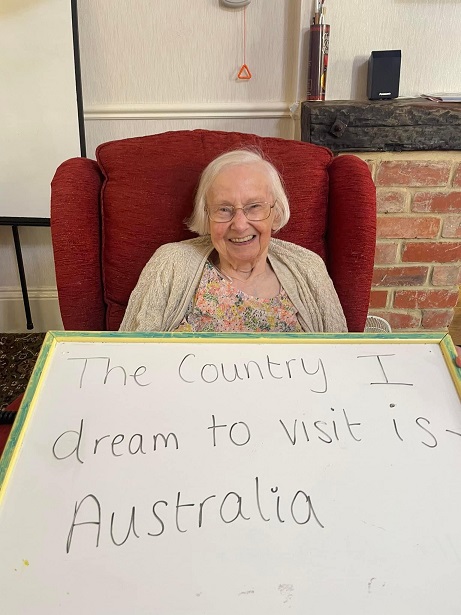 The Country I
dream to visit is-
Australia